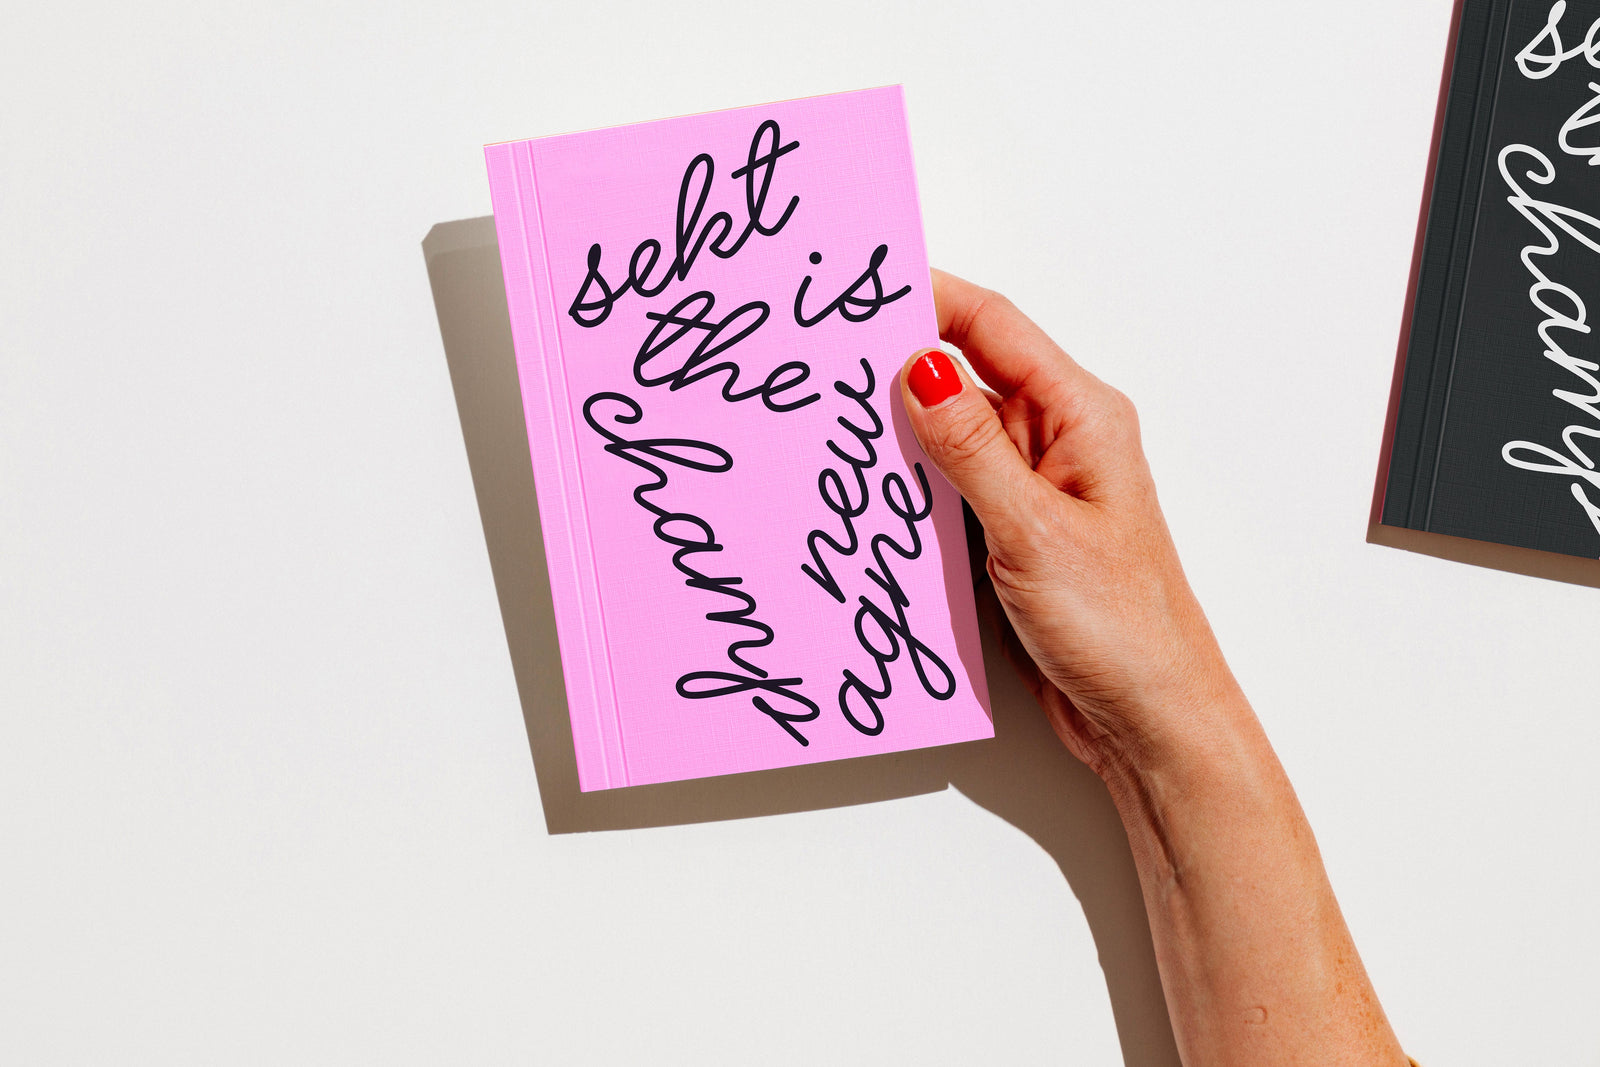 sekt
is
the
new
champ
agne
champ